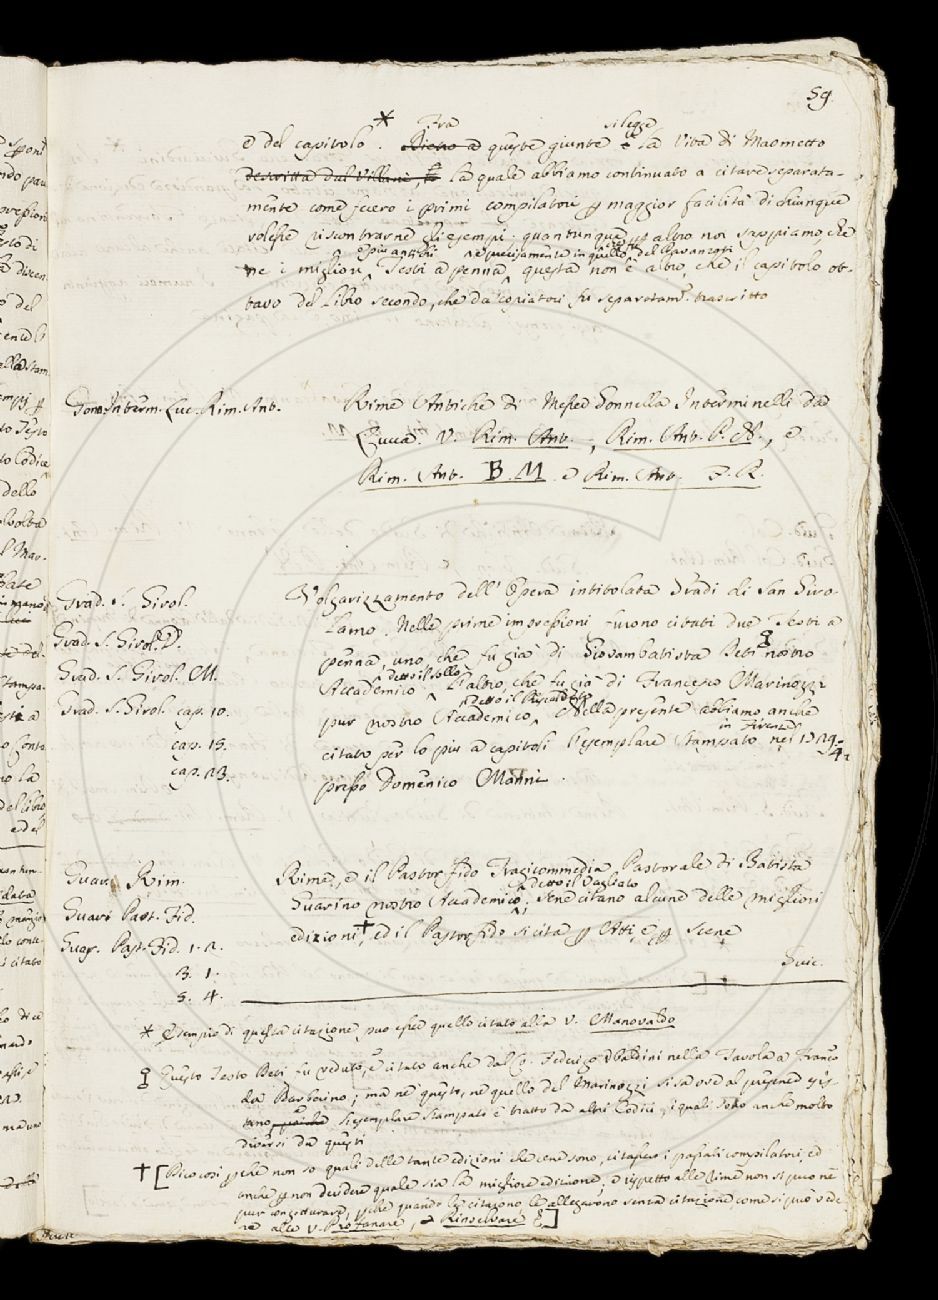 59
e del capitolo . * Dietro a Fra queste giunte è si legge la Vita di Maometto
descritta dal Villani, la quale abbiamo continuato a citare separata-
mente come fecero i primi compilatori p maggior facilità di chiunque
volesse riscontrarne gli esempi: quantunque p altro noi sappiamo, che
ne i migliori, e più antichi Testi a penna, e precisamente in quello del Davanzati questa non è altro, che il capitolo ot-
tavo del Libro secondo, che da copiatori fu separatam. trascritto
Gonn. Interm. Luc. Rim. Ant.
Rime Antiche di Messer Gonnella Interminelli da
Lucca. V. Rim. Ant., Rim. Ant. P. N., e
Rim. Ant. B. M. e Rim. Ant. F. R.
Grad. S. Girol.
Grad. S. Girol. D.
Grad. S. Girol. M.
Grad. S. Girol. cap. 10.
cap. 15.
cap. 23.
Volgarizzamento dell' Opera intitolata Gradi di San Giro-
lamo. Nelle prime impressioni furono citati due Testi a
penna, uno, che fu già di Giovambatista Deti nostro
Accademico detto il Sollo, l'altro, che fu già di Francesco Marinozzi
pur nostro Accademico, detto il Nella presente abbiamo anche
citato per lo più a capitoli l'esemplare stampato in Firenze nel 1729. 4.
presso Domenico Manni.
Guar. Rim.
Guar. Past. Fid.
Guar. Past. Fid. 1. 2.
3. 1.
5. 4.
Rime, e il Pastor fido Tragicommedia Pastorale di Batista
Guarino nostro Accademico, detto il se ne citano alcune delle migliori
edizioni †, ed il Pastor fido si cita p Atti, e p Scene
Guic.
* Esempio di questa citazione può esser quello citato alla V. Manovaldo
Questo Testo Deti fu veduto, e citato anche dal C. Federigo Ubaldini nella Tavola a Franco
da Barberino; ma nè questo, nè quello del Marinozzi si sa ove al presente esis-
tano, l'esemplare stampato è tratto da altri Codici, i quali sono anche molto
diversi da questi
† [Dico così perchè non so quali delle tante edizioni che ce ne sono, citassero i passati compilatori, ed
anche p non decidere quale sia la migliore edizione, e rispetto alle Rime non si può nè
pur congetturare, perchè quando le citarono le allegarono senza citazione, come si può vede-
re alle V. Profanare, e Rinselvare]